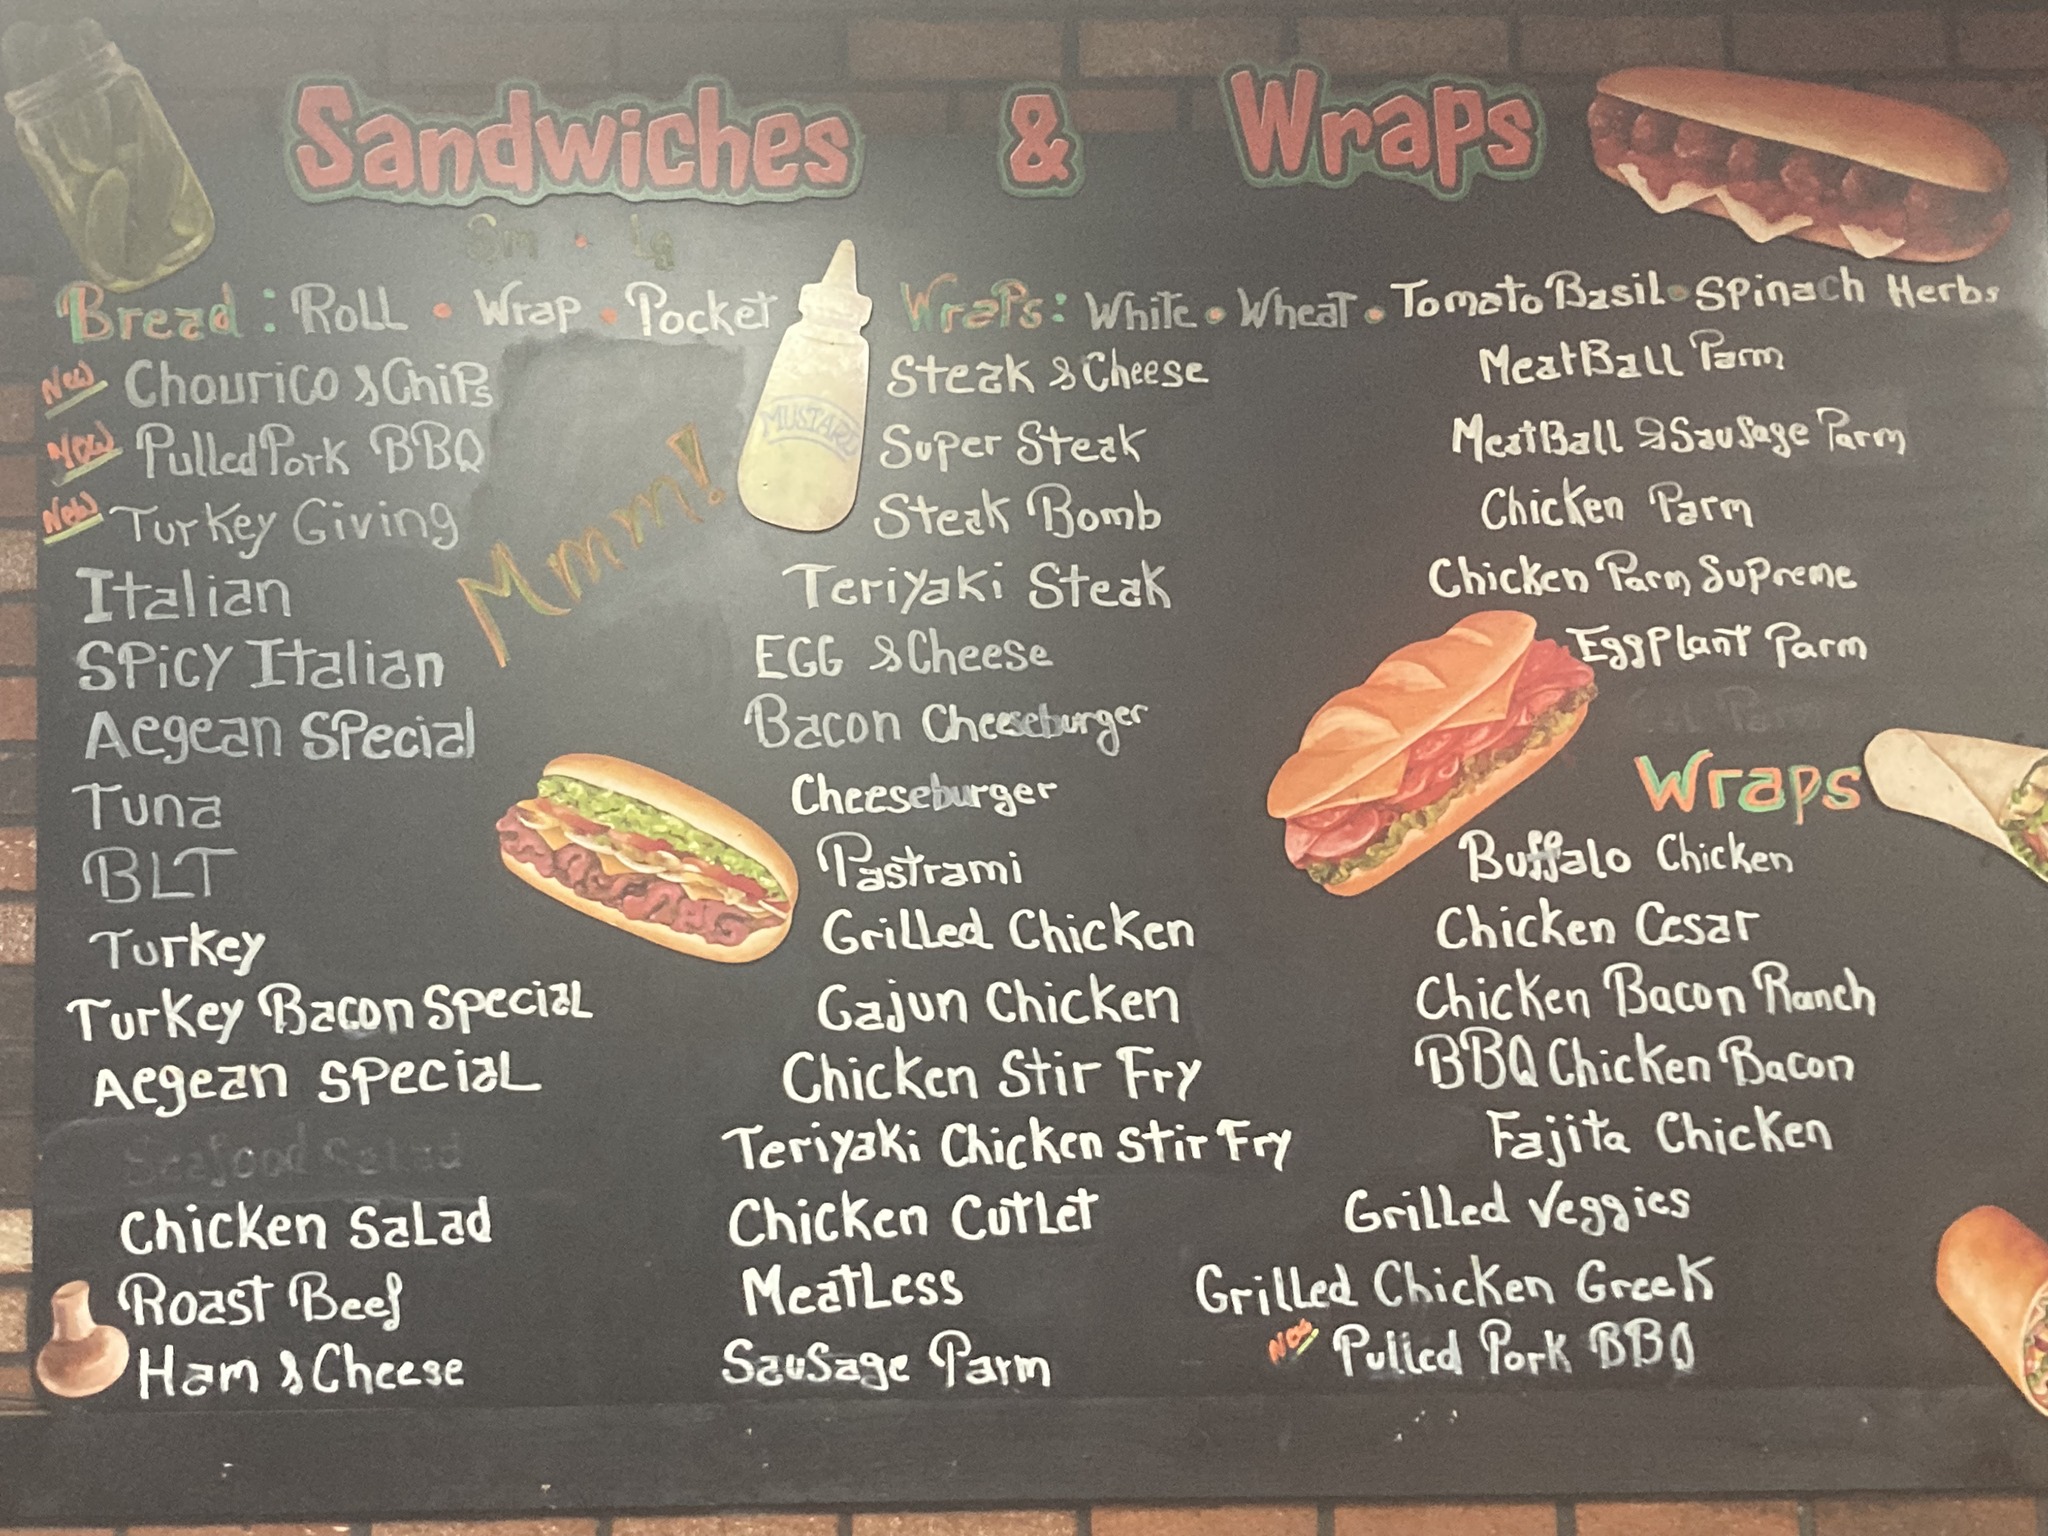 Sandwiches & Wraps
Sm • Lg
Bread: Roll • Wrap • Pocket
New Chourico & Chips
New Pulled Pork BBQ
New Turkey Giving
Mmmm!
Italian
Spicy Italian
Aegean Special
Tuna
BLT
Turkey
Turkey Bacon Special
Aegean Special
Seafood Salad
Chicken Salad
Roast Beef
Ham & Cheese
MUSTARD
Wraps: White • Wheat • Tomato Basil • Spinach Herbs
Steak & Cheese
Super Steak
Steak Bomb
Teriyaki Steak
EGG & Cheese
Bacon Cheeseburger
Cheeseburger
Pastrami
Grilled Chicken
Gajun Chicken
Chicken Stir Fry
Teriyaki Chicken Stir Fry
Chicken Cutlet
Meatless
Sausage Parm
MeatBall Parm
MeatBall & Sausage Parm
Chicken Parm
Chicken Parm Supreme
Eggplant Parm
Parm
Wraps
Buffalo Chicken
Chicken Cesar
Chicken Bacon Ranch
BBQ Chicken Bacon
Fajita Chicken
Grilled Veggies
Grilled Chicken Greek
New Pulled Pork BBQ